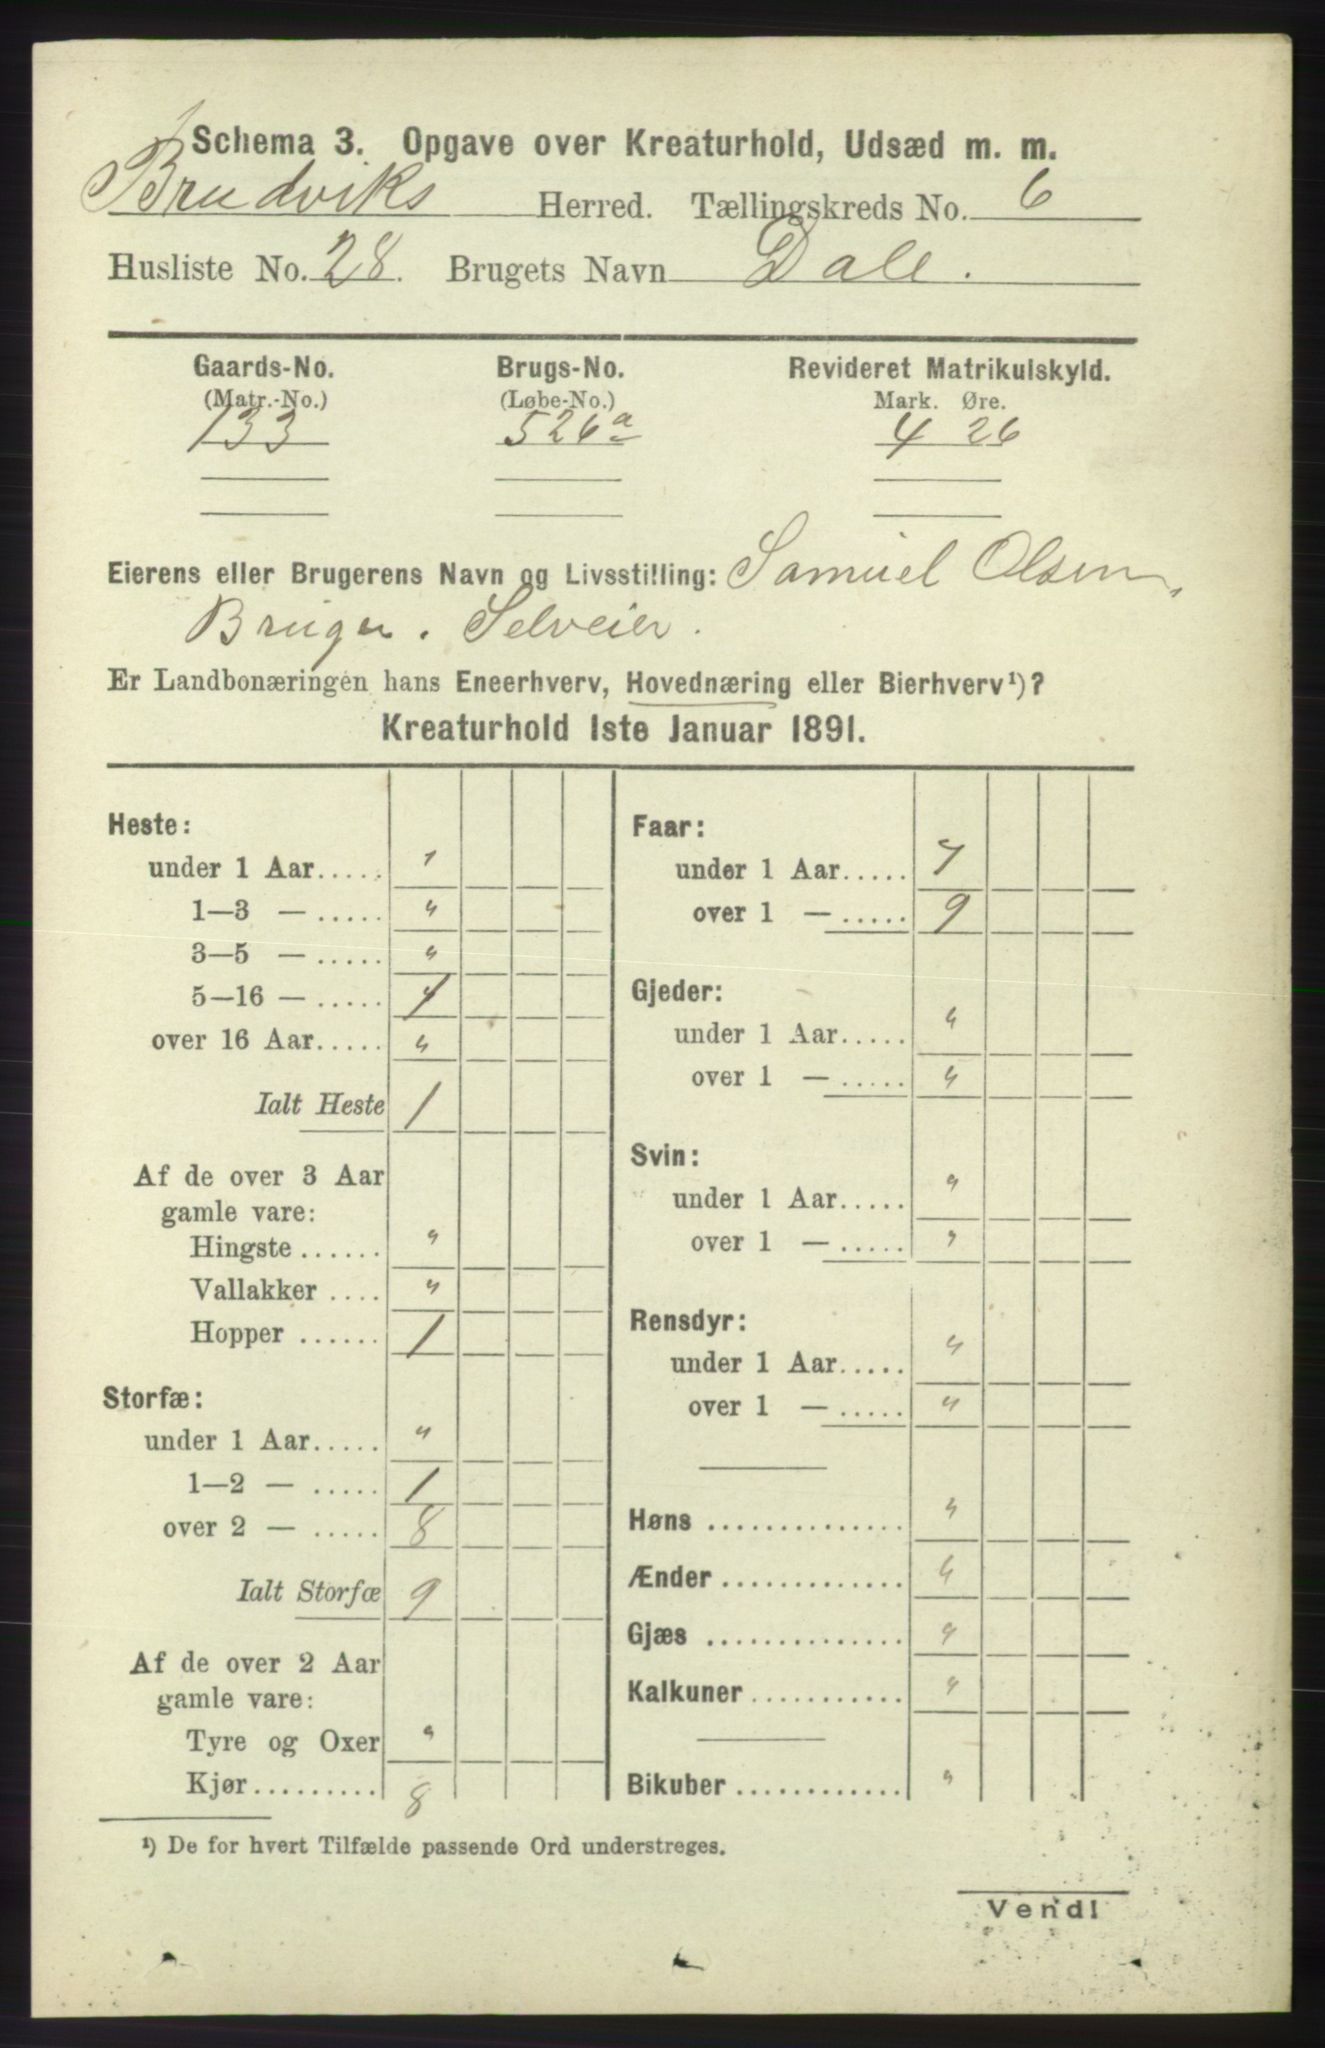 Schema 3. Opgave over Kreaturhold, Udsæd m. m.
Brudviks Herred. Tællingskreds No. 6
Husliste No. 28. Brugets Navn Dale.
Gaards-No. Brugs-No. Revideret Matrikulskyld.
(Matr.-No.) (Løbe-No.) Mark. Øre.
133 526a 4 26
Eierens eller Brugerens Navn og Livsstilling: Samuel Olsen,
Bruger. Selveier.
Er Landbonæringen hans Eneerhverv, Hovednæring eller Bierhverv¹)?
Kreaturhold 1ste Januar 1891.
Heste:
under 1 Aar..... "
1—3 — ..... "
3—5 — ..... "
5—16 — ..... 1
over 16 Aar..... "
Ialt Heste 1
Af de over 3 Aar
gamle vare:
Hingste ...... "
Vallakker .... "
Hopper ...... 1
Storfæ:
under 1 Aar..... "
1—2 — ..... 1
over 2 — ..... 8
Ialt Storfæ 9
Af de over 2 Aar
gamle vare:
Tyre og Oxer "
Kjør......... 8
Faar:
under 1 Aar..... 7
over 1 — ..... 9
Gjeder:
under 1 Aar..... "
over 1 — ..... "
Svin:
under 1 Aar..... "
over 1 — ..... "
Rensdyr:
under 1 Aar..... "
over 1 — ..... "
Høns .............. "
Ænder ............. "
Gjæs .............. "
Kalkuner ........... "
Bikuber ............ "
¹) De for hvert Tilfælde passende Ord understreges.
Vend!